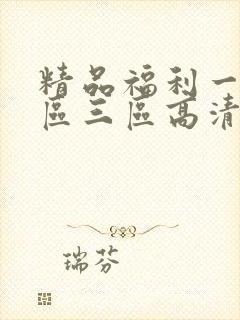 精品福利一
區三區高清
瑞芬